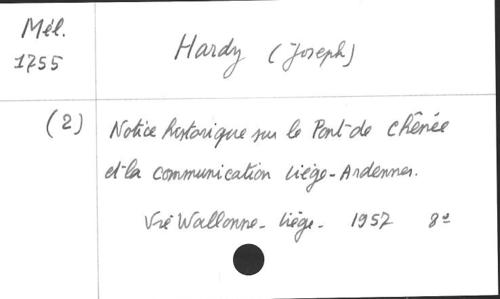 Mél.
1755
Hardy (Joseph)
(2)
Notice historique sur le Pont-de Chênée
et la communication Liège-Ardennes.
Vie Wallonne - Liège - 1957 8º